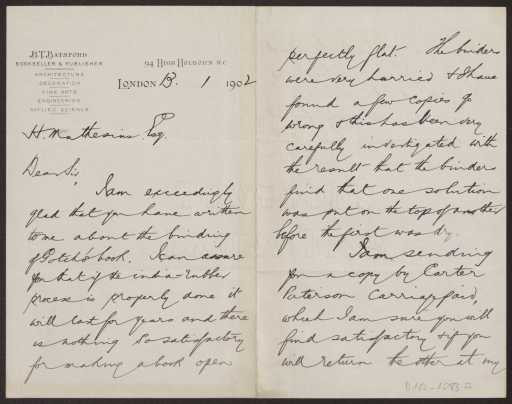 B.T. BATSFORD
BOOKSELLER & PUBLISHER
ARCHITECTURE
DECORATION
FINE ARTS
ENGINEERING
APPLIED SCIENCE
94 HIGH HOLBORN W.C.
LONDON 13. 1 1902
H. Mathesius Esq.
Dear Sir,
I am exceedingly
glad that you have written
to me about the binding
of Gotch's book. I can assure
you that if the india-rubber
process is properly done it
will last for years and there
is nothing so satisfactory
for making a book open
perfectly flat. The binders
were very hurried & I have
found a few copies go
wrong & this has been very
carefully investigated with
the result that the binders
find that one solution
was put on the top of another
before the first was dry.
I am sending
you a copy by Carter
Paterson Carriage paid,
which I am sure you will
find satisfactory & if you
will return the other at my